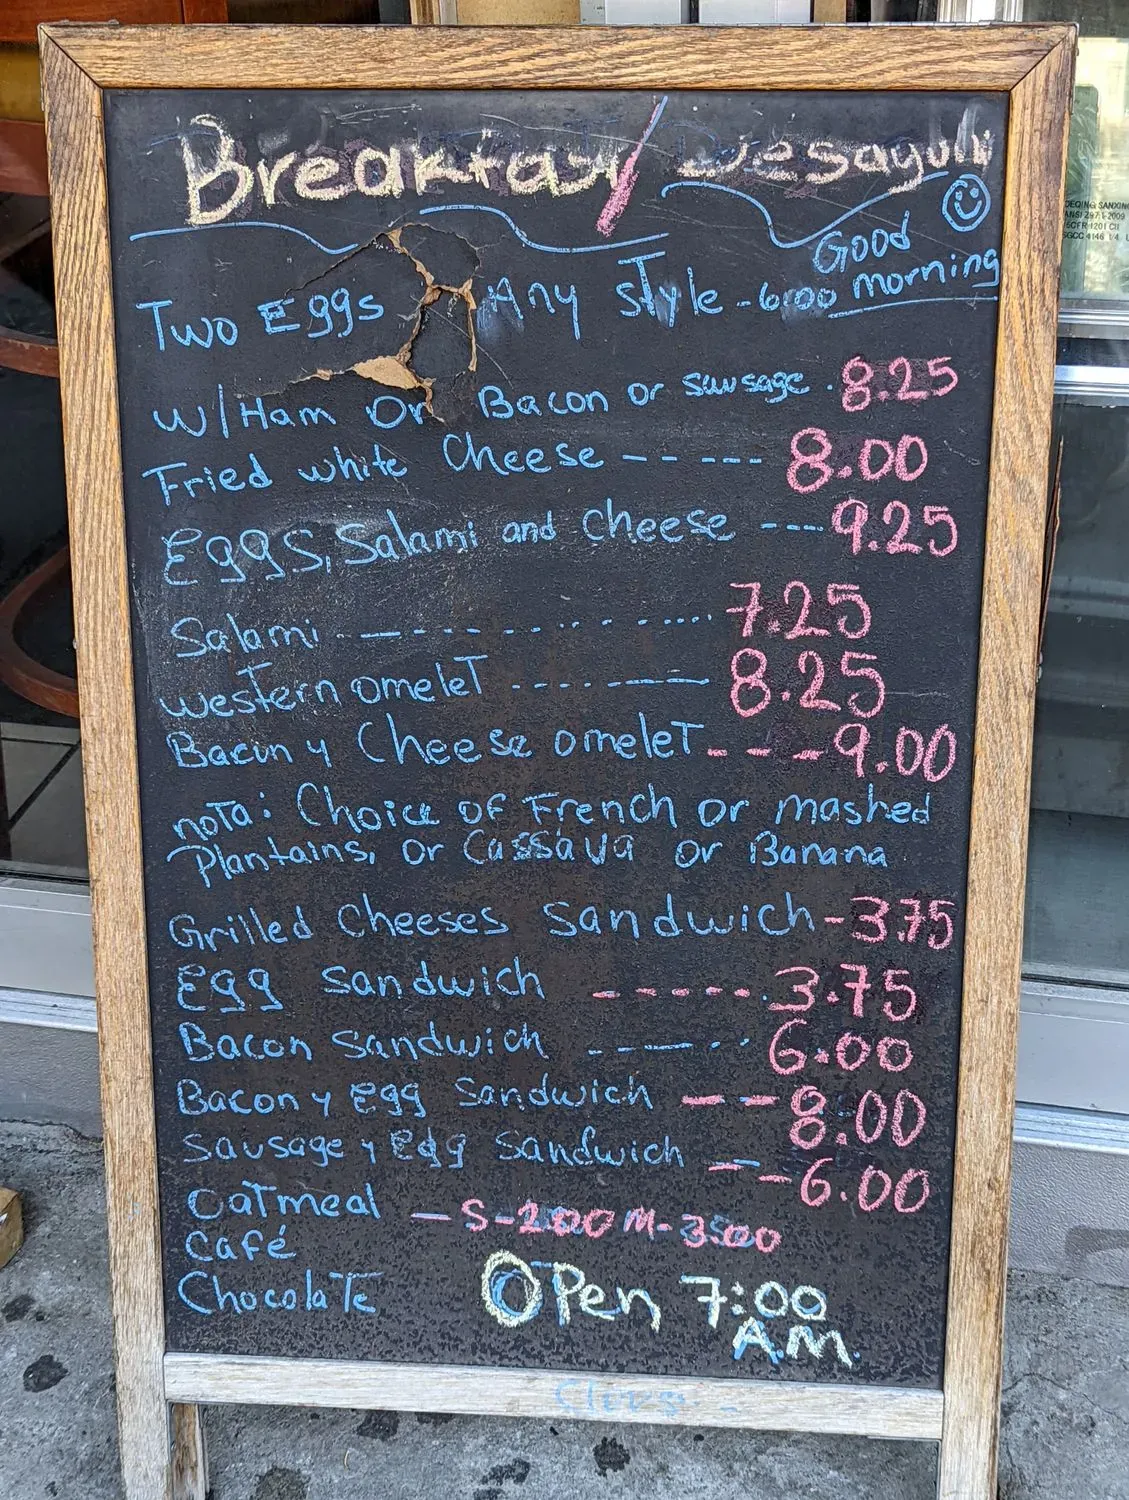 Breakfast/Desayuni
Good
morning
Two Eggs Any Style - 6.00
W/Ham Or Bacon or sausage . 8.25
Fried white Cheese ------ 8.00
Eggs, Salami and cheese ---- 9.25
Salami ............ 7.25
western omelet ........ 8.25
Bacon y Cheese omelet - - - 9.00
nota: Choice of French or mashed
Plantains, or Cassava or Banana
Grilled Cheeses Sandwich - 3.75
Egg Sandwich ------- 3.75
Bacon Sandwich ------ 6.00
Bacon y Egg Sandwich --- 8.00
Sausage y Edg Sandwich --- 6.00
Oatmeal - S-2.00 M-3.00
Café
Chocolate
Open 7:00
A.M.
DEQING SANXING
ANSI Z97.1-2009
16CFR 1201 CII
SGCC 4146 1/4